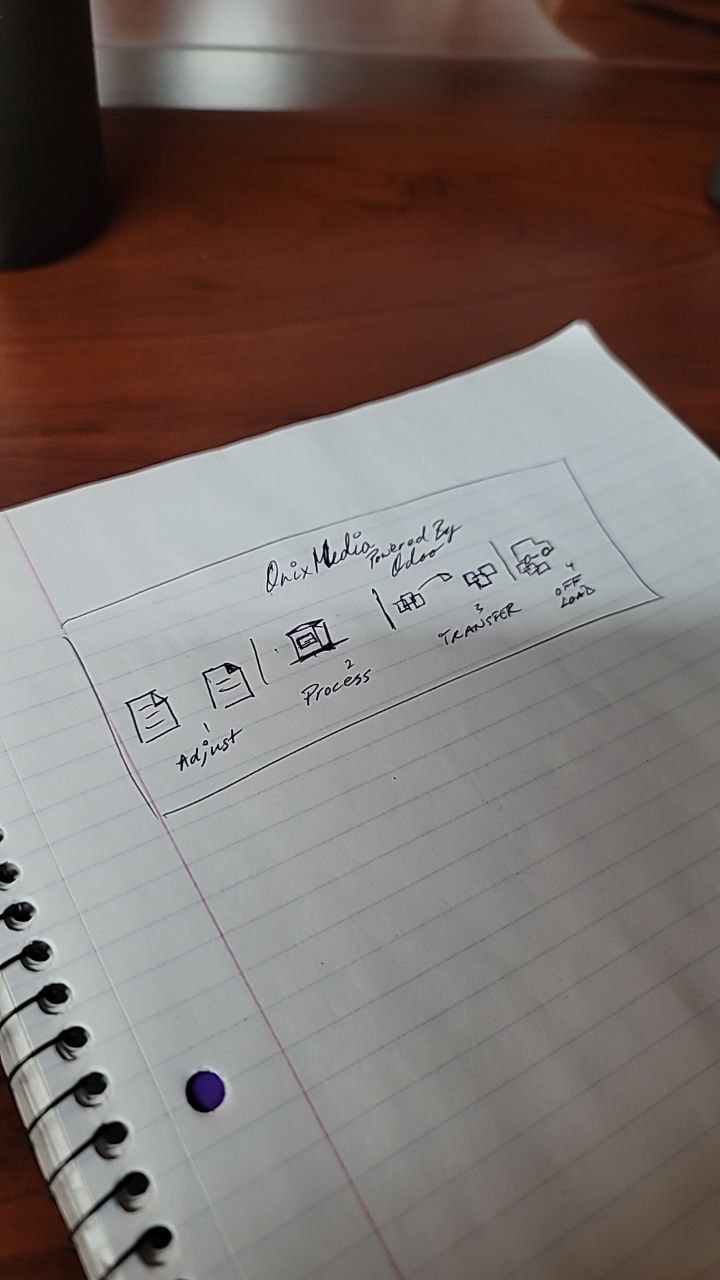 OnixMedia Powered By
Odoo
1
Adjust
2
Process
3
TRANSFER
4
OFF
LOAD